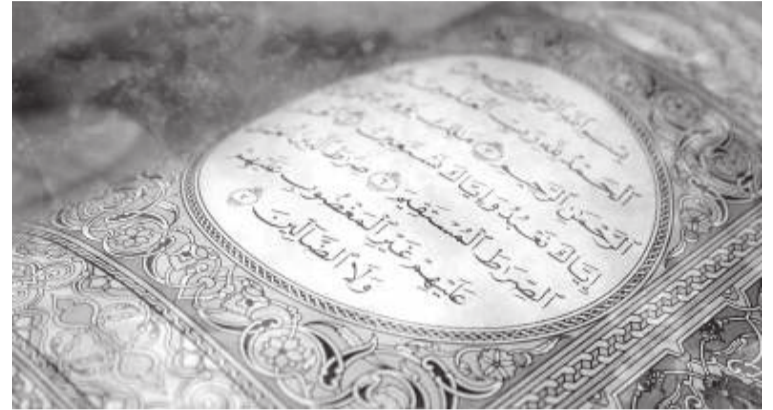 بِسْمِ اللَّهِ الرَّحْمَٰنِ الرَّحِيمِ
الْحَمْدُ لِلَّهِ رَبِّ الْعَالَمِينَ
الرَّحْمَٰنِ الرَّحِيمِ ٣ مَالِكِ
إِيَّاكَ نَعْبُدُ وَإِيَّاكَ نَسْتَعِينُ
الصِّرَاطَ الْمُسْتَقِيمَ ٦ صِرَاطَ الَّذِينَ
عَلَيْهِمْ غَيْرِ الْمَغْضُوبِ عَلَيْهِمْ
وَلَا الضَّالِّينَ ٧